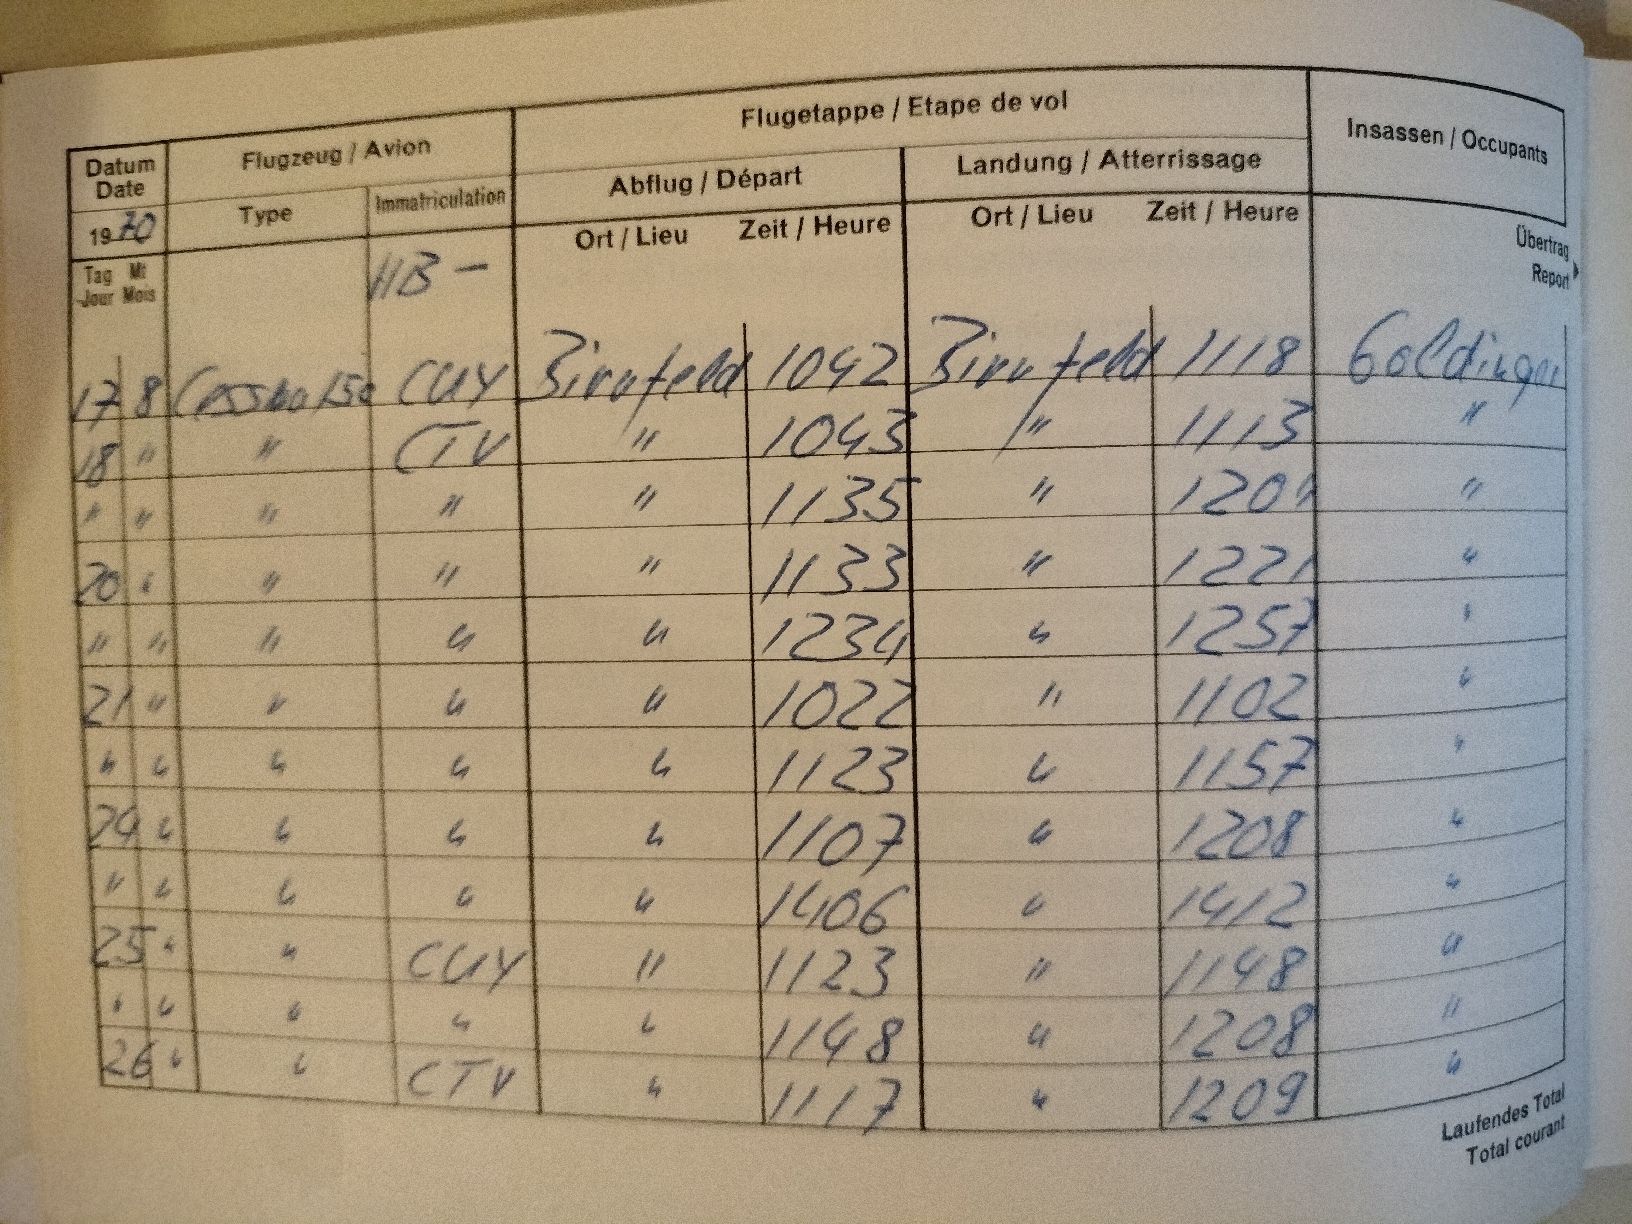 Flugetappe / Etape de vol
Insassen / Occupants
Datum
Date
Flugzeug / Avion
Abflug / Départ
Landung / Atterrissage
1970
Type
Immatriculation
Ort / Lieu Zeit / Heure
Ort / Lieu Zeit / Heure
Übertrag
Report
Tag Mt
Jour Mois
HB -
17 8 Cessna 150 CUY Birrfeld 1042 Birrfeld 1118 Goldinger
18 " " CTV " 1043 " 1113 "
" " " " " 1135 " "
20 " " " " 1133 " 1221 "
" " " " " 1234 " 1257 "
21 " " " " 1022 " 1102 "
" " " " " 1123 " 1157 "
24 " " " " 1107 " 1208 "
" " " " " 1406 " 1412 "
25 " " CUY " 1123 " 1148 "
" " " " " 1148 " 1208 "
26 " " CTV " 1117 " 1209 "
Laufendes Total
Total courant